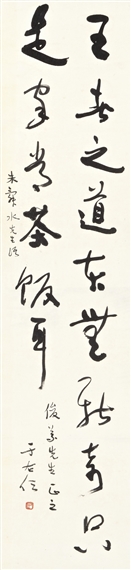 王者之道本無新奇只
是家常茶飯耳
朱舜水先生語
俊 先生正之
于右任